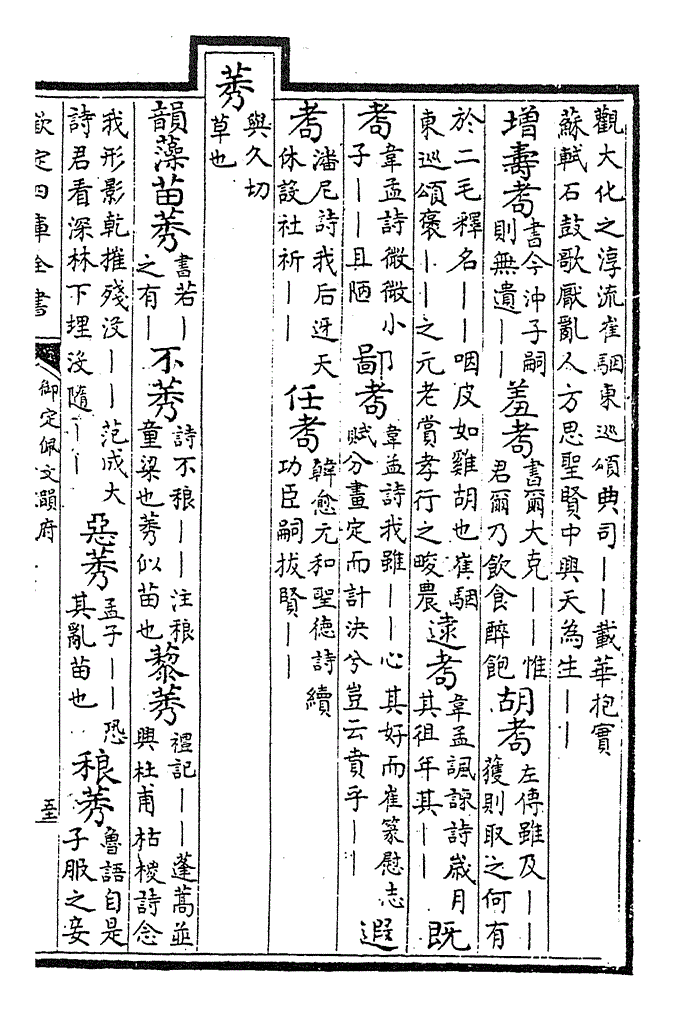 觀大化之淳流崔駰東巡頌典司——載華抱實
蘇軾石鼓歌厭亂人方思聖賢中興天為生——
増壽耇 書今沖子嗣則無遺—— 羞耇 書爾大克——惟君爾乃飲食醉飽 胡耇 左傳雖及——獲則取之何有
於二毛釋名——咽皮如雞胡也崔駰東巡頌褒——之元老賞孝行之畯農 逮耇 韋孟諷諫詩歲月其徂年其—— 既
耇 韋孟詩微微小子——且陋 鄙耇 韋孟詩我雖——心其好而崔篆慰志賦分畫定而計決兮豈云賁乎—— 遐
耇 潘尼詩我后迓天休設社祈—— 任耇 韓愈元和聖德詩續功臣嗣拔賢——
莠 與久切草也
韻藻苗莠 書若—之有— 不莠 詩不稂——注稂童粱也莠似苗也 藜莠 禮記——蓬蒿並興杜甫枯椶詩念
我形影乾摧殘沒——范成大詩君看深林下埋沒隨—— 惡莠 孟子——恐其亂苗也 稂莠 魯語自是子服之妾
欽定四庫全書
御定佩文韻府